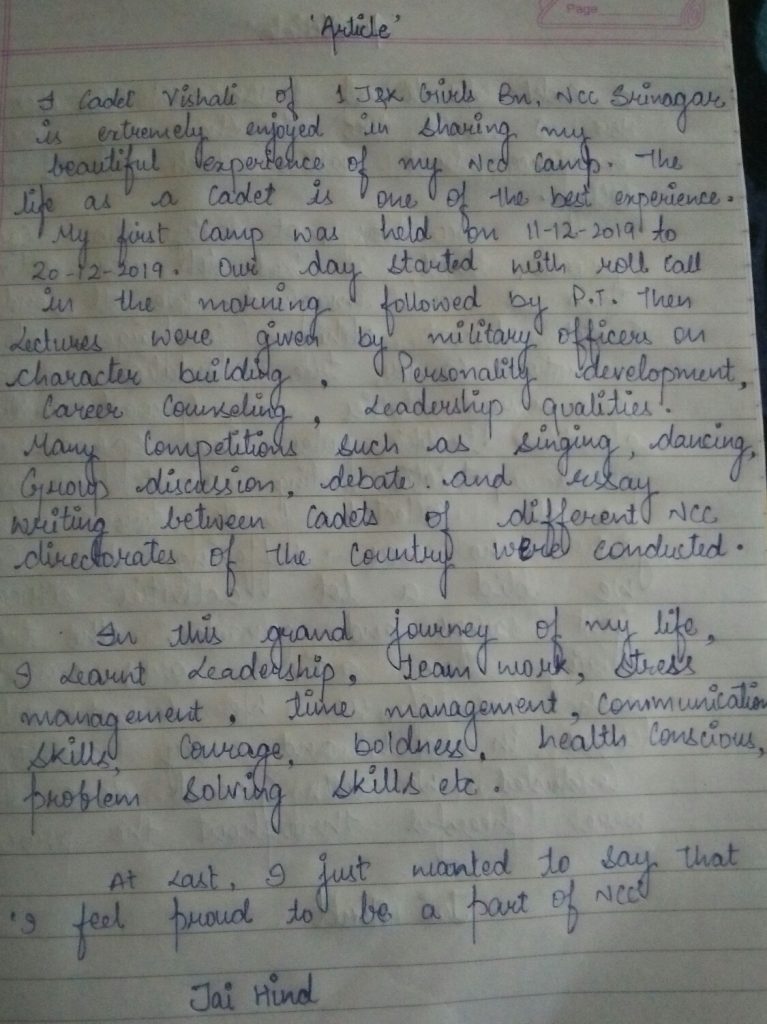 Page
'Article'
I Cadet Vishali of 1 J&K Girls Bn, NCC Srinagar
is extremely enjoyed in sharing my
beautiful experience of my NCC camp. The
life as a Cadet is one of the best experience.
My first Camp was held on 11-12-2019 to
20-12-2019. Our day started with roll call
in the morning followed by P.T. Then
Lectures were given by military officers on
character building, Personality development,
Career Counseling, Leadership qualities.
Many Competitions such as singing, dancing,
Group discussion, debate. and essay
writing between Cadets of different NCC
directorates of the Country were conducted.
In this grand journey of my life,
I Learnt Leadership, team work, stress
management, time management, communication
skills, Courage, boldness, health Conscious,
problem solving skills etc.
At Last, I just wanted to say that
'I feel proud to be a part of NCC'
Jai Hind